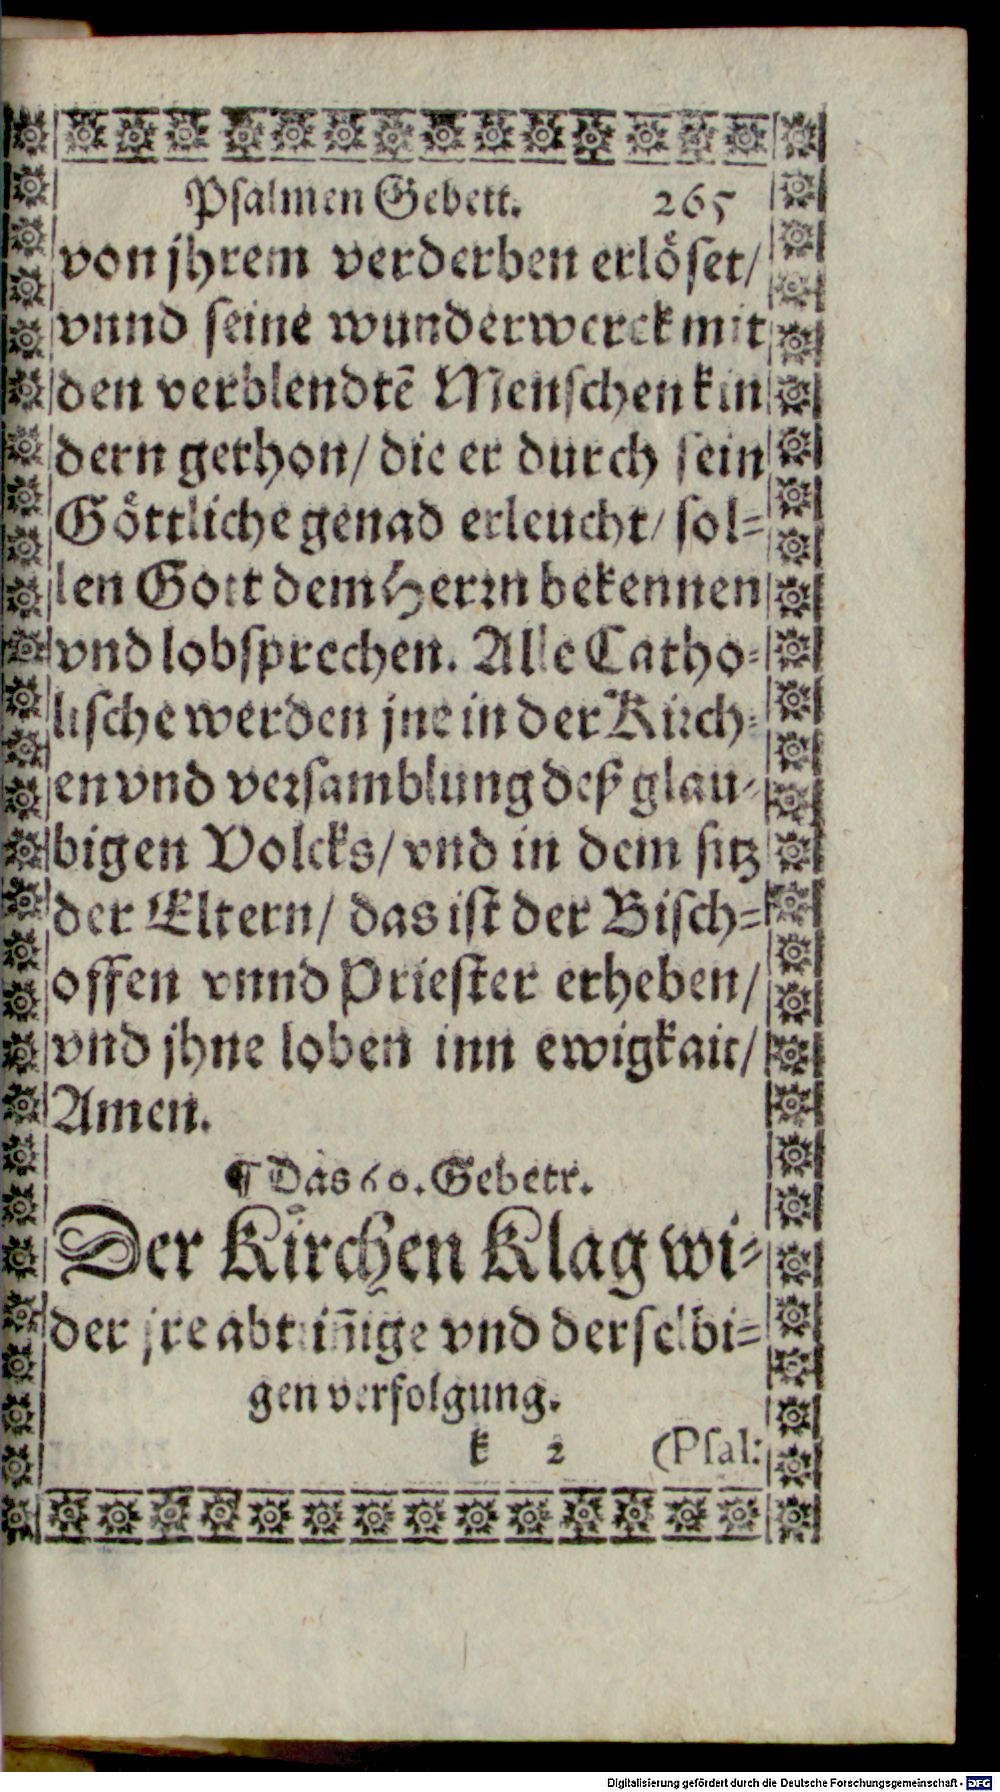 Psalmen Gebett. 265
von jhrem verderben erlöset/
vnnd seine wunderwerck mit
den verblendtē Menschen kin
dern gethon/ die er durch sein
Göttliche genad erleucht/ sol-
len Gott dem Herrn bekennen
vnd lobsprechen. Alle Catho-
lische werden jne in der Kirch-
en vnd versamblung deß glau-
bigen Volcks/ vnd in dem sitz
der Eltern/ das ist der Bisch-
offen vnnd Priester erheben/
vnd jhne loben inn ewigkait/
Amen.
¶ Das 60. Gebett.
Der Kirchen Klag wi-
der jre abtriñige vnd derselbi-
gen verfolgung.
k 2 (Psal:
Digitalisierung gefördert durch die Deutsche Forschungsgemeinschaft - DFG